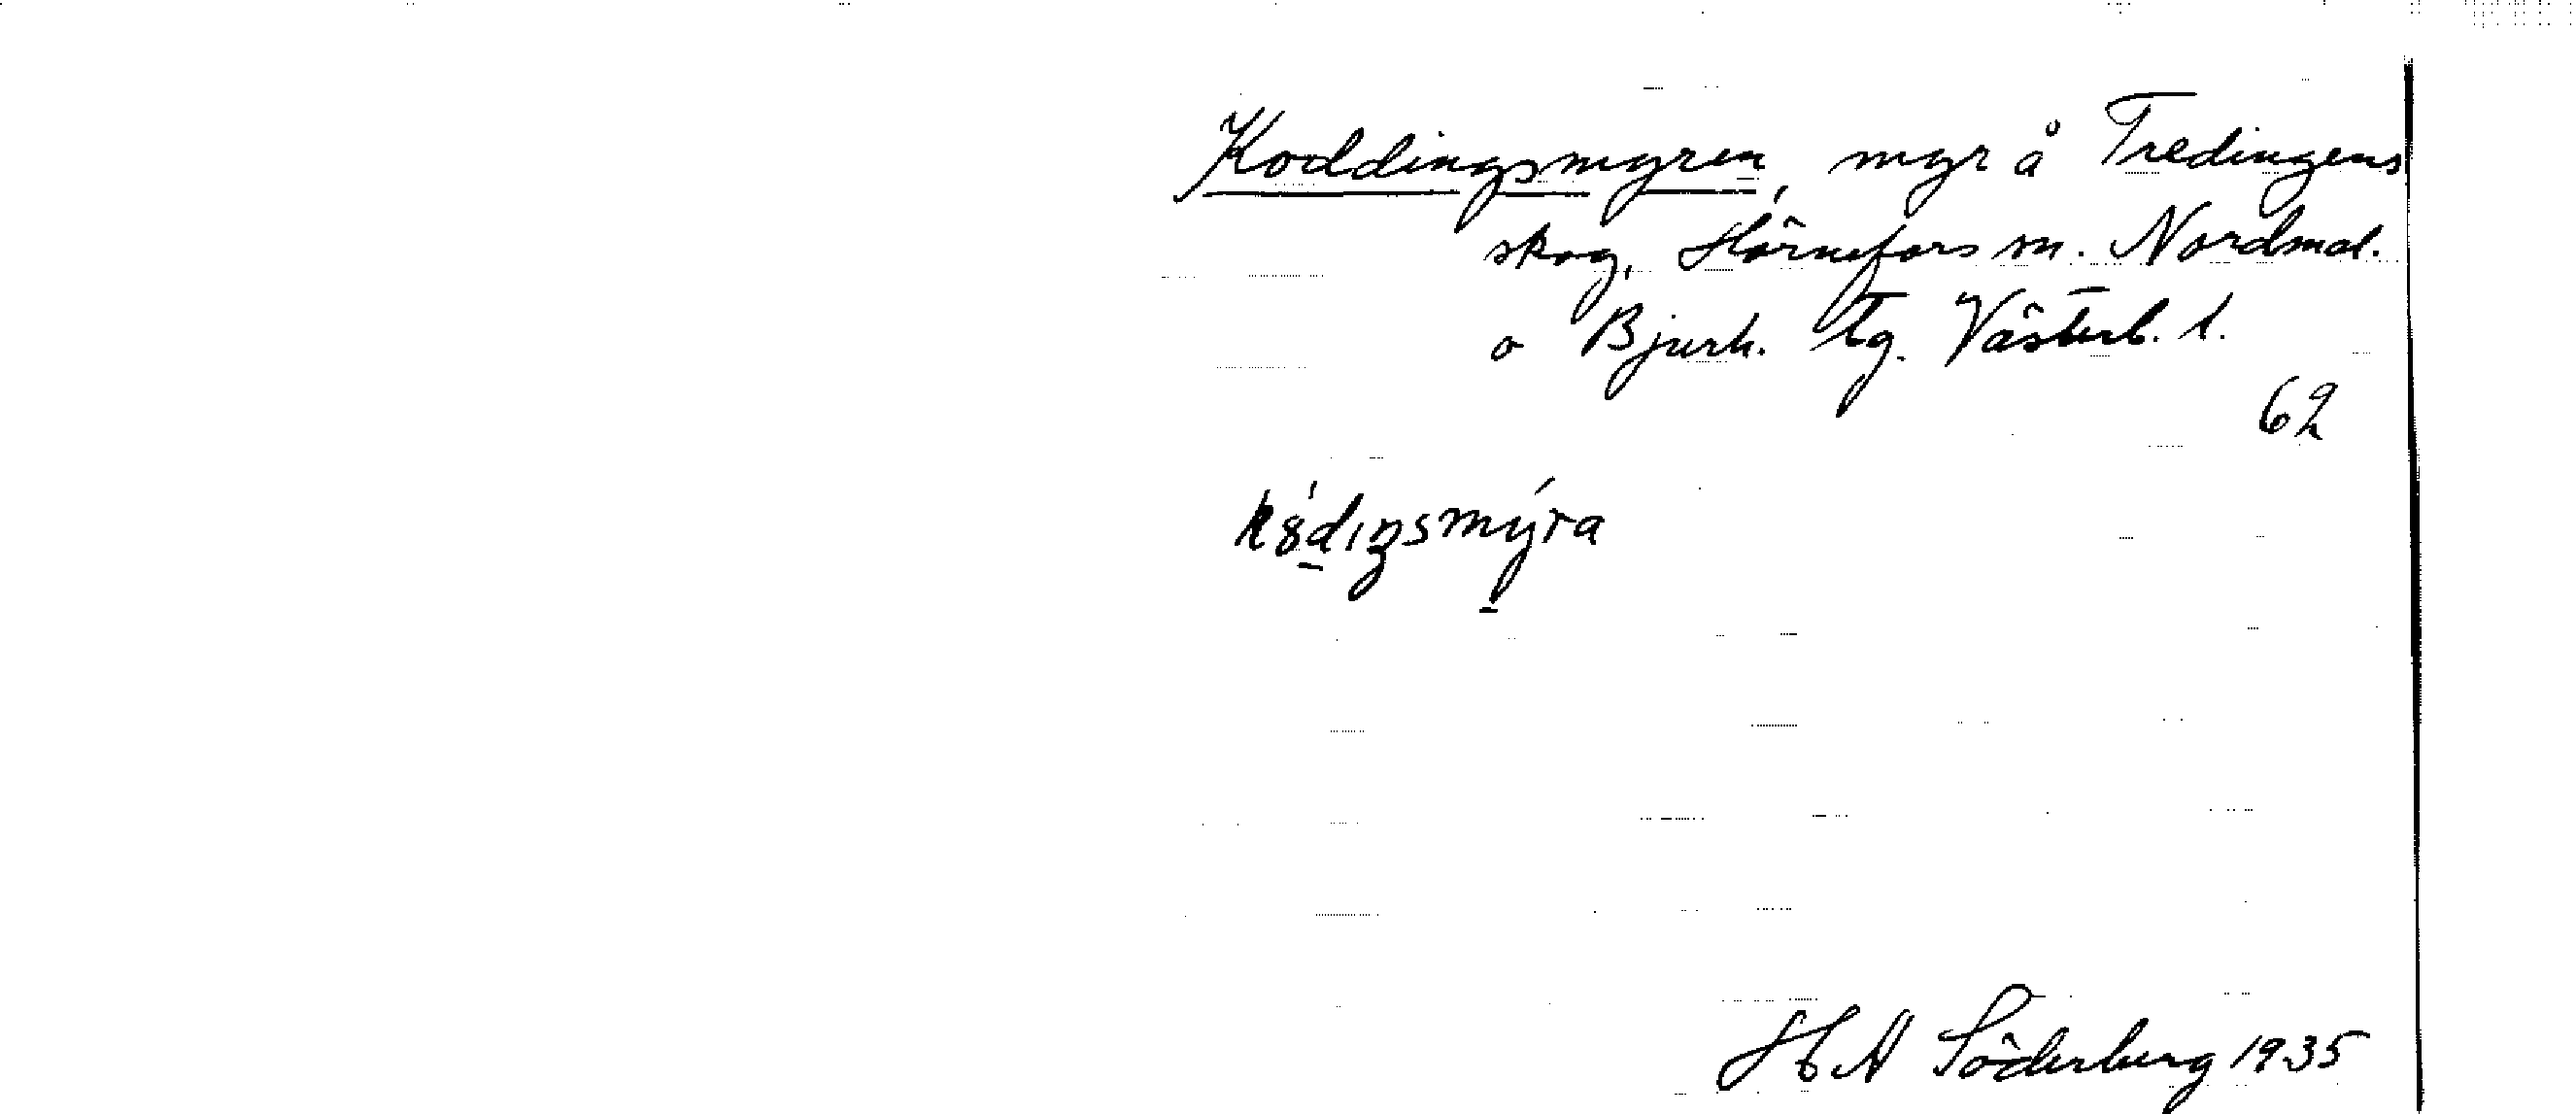 Koddingsmyren, myr å Tredingens
skog, Hörnefors sn. Nordmal.
o Bjurh. tg. Västerb. l.
62
H A Söderberg 1935